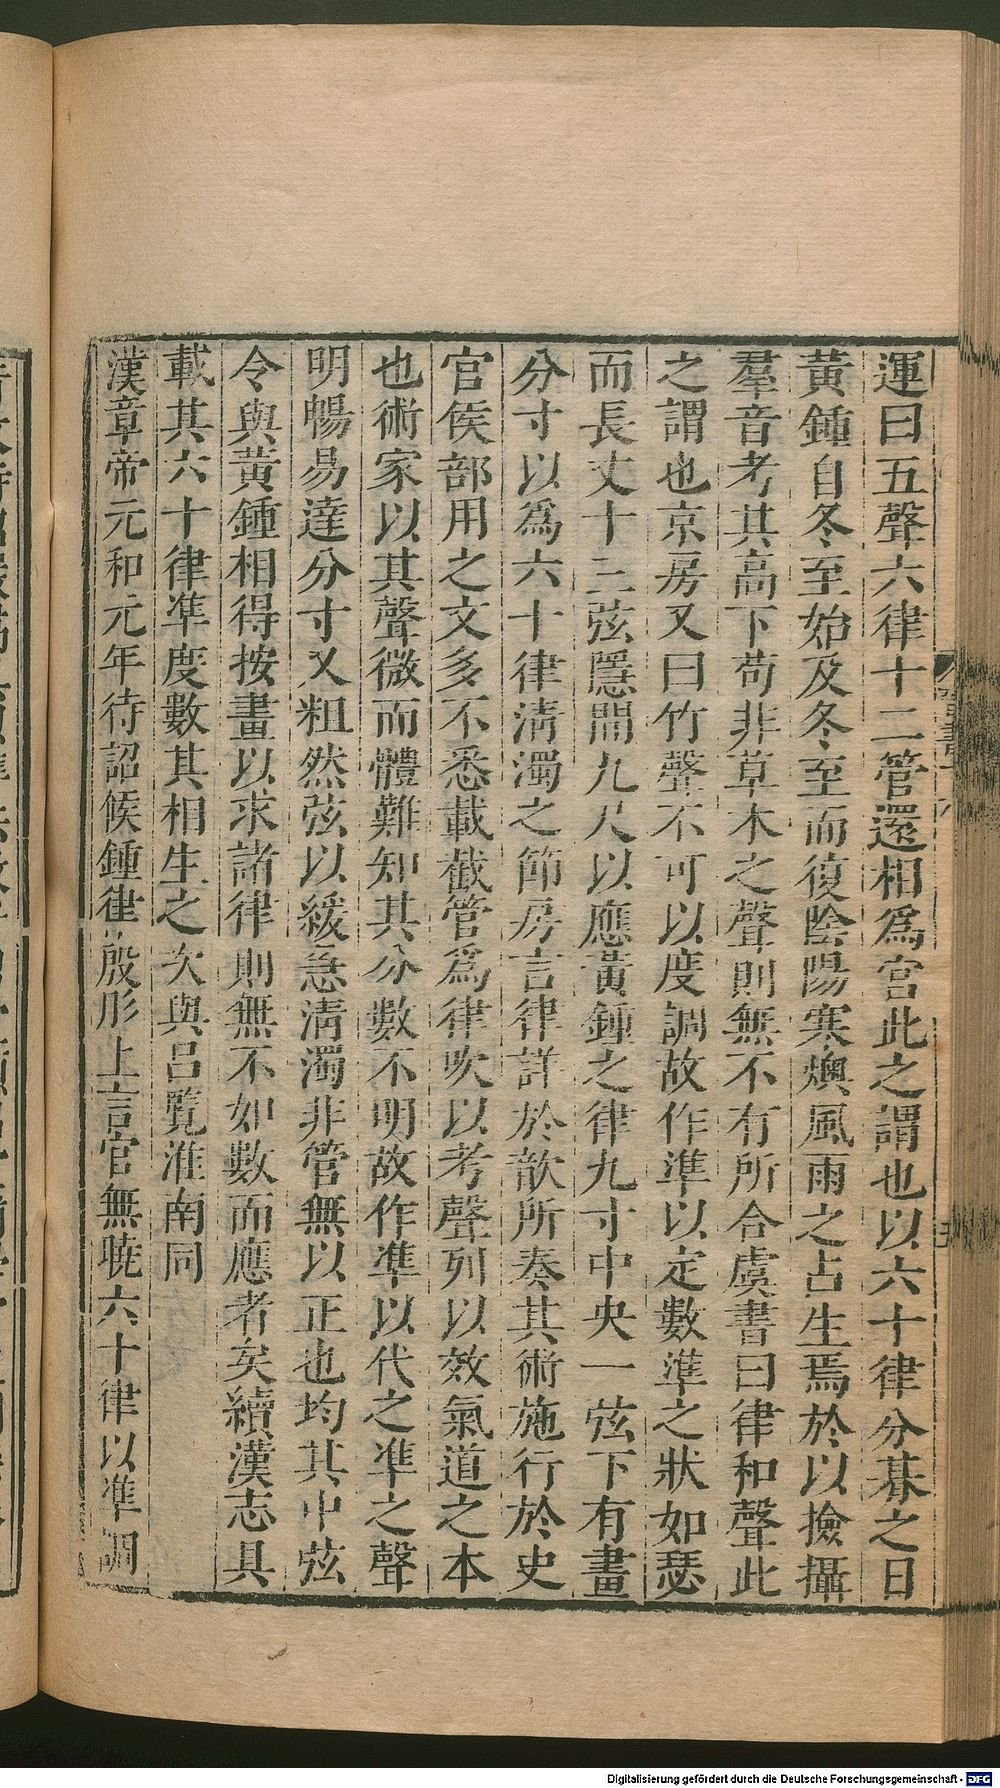 運曰五聲六律十二管還相爲宮此之謂也以六十律分朞之日
黃鍾自冬至始及冬至而復陰陽寒燠風雨之占生焉於以撿攝
羣音考其高下苟非草木之聲則無不有所合虞書曰律和聲此
之謂也京房又曰竹聲不可以度調故作準以定數準之狀如瑟
而長丈十三弦隱閒九尺以應黃鍾之律九寸中央一弦下有畫
分寸以爲六十律清濁之節房言律詳於歆所奏其術施行於史
官候部用之文多不悉載截管爲律吹以考聲列以效氣道之本
也術家以其聲微而體難知其分數不明故作準以代之準之聲
明暢易達分寸又粗然弦以緩急清濁非管無以正也均其中弦
令與黃鍾相得按畫以求諸律則無不如數而應者矣續漢志具
載其六十律準度數其相生之次與呂覽淮南同
漢章帝元和元年待詔候鍾律殷肜上言官無曉六十律以準調
Digitalisierung gefördert durch die Deutsche Forschungsgemeinschaft - DFG